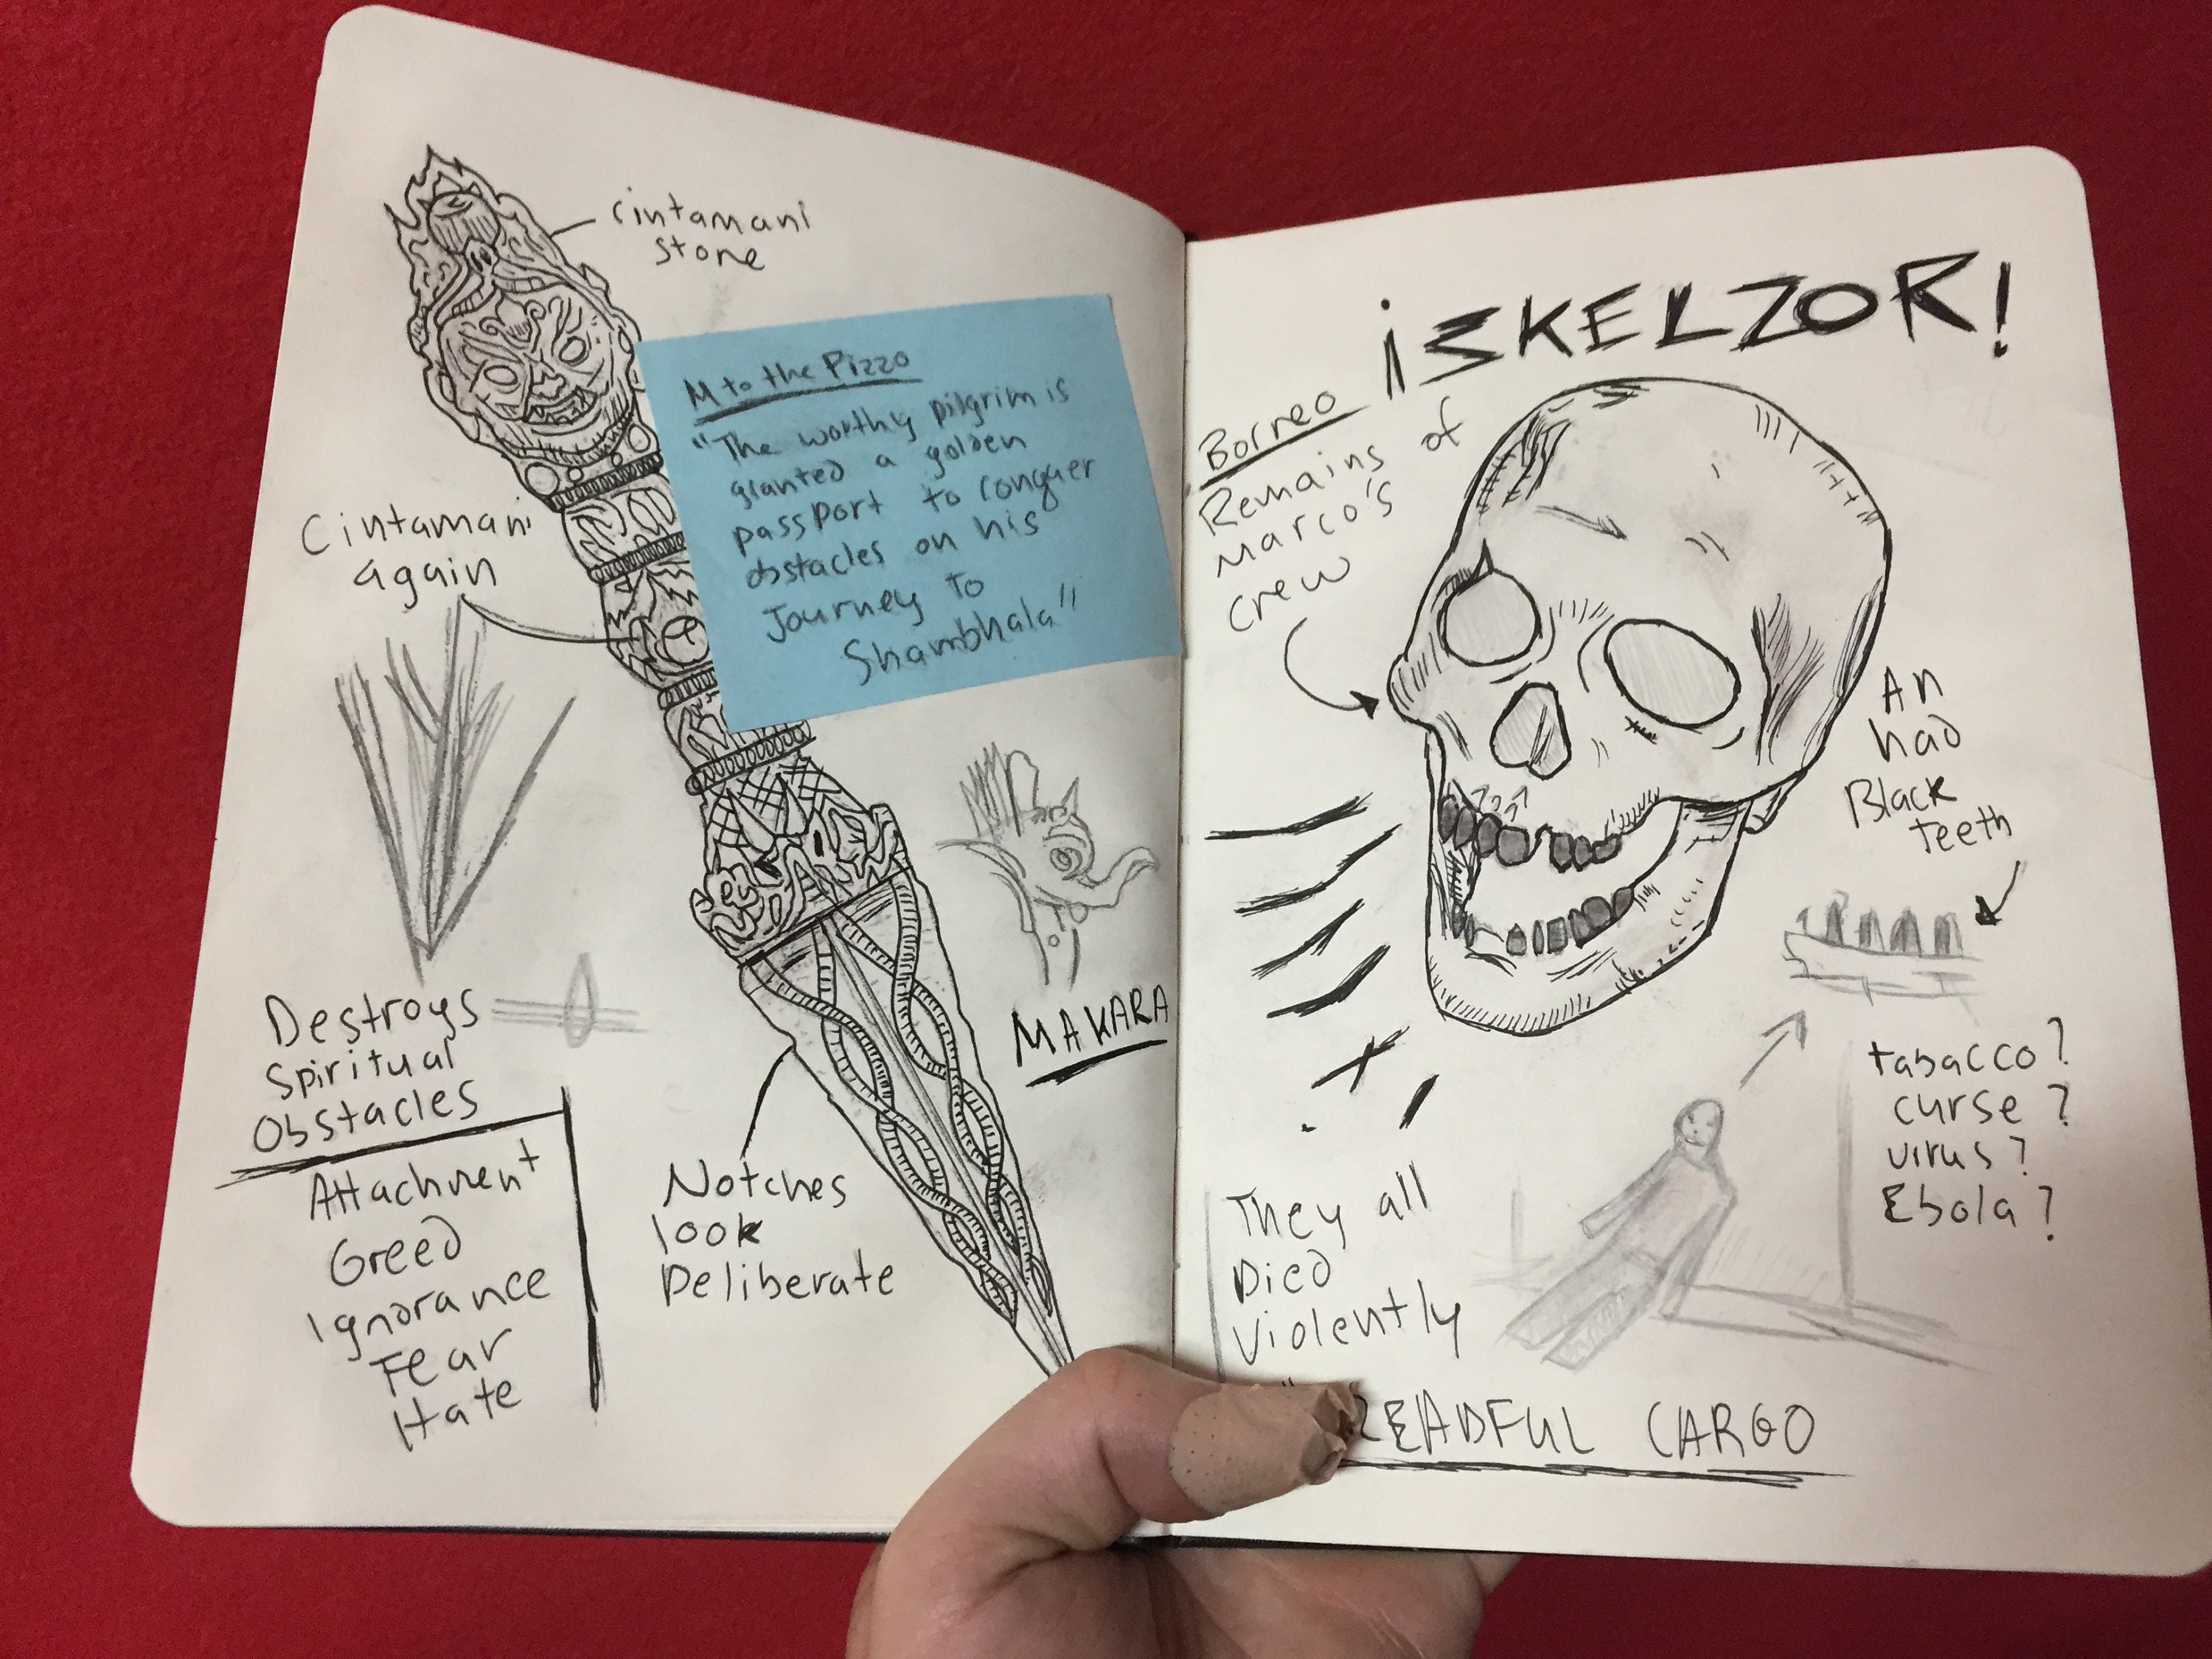 cintamani
stone
M to the Pizzo
"The worthy pilgrim is
granted a golden
passport to conquer
obstacles on his
Journey to
Shambhala"
Cintamani
again
Destroys
Spiritual
Obstacles
Attachment
Greed
ignorance
Fear
Hate
MAKARA
Notches
look
Deliberate
¡SKELZOR!
Borneo
Remains of
Marco's
crew
An
had
Black
teeth
tabacco?
curse?
virus?
Ebola?
They all
Died
Violently
READFUL CARGO